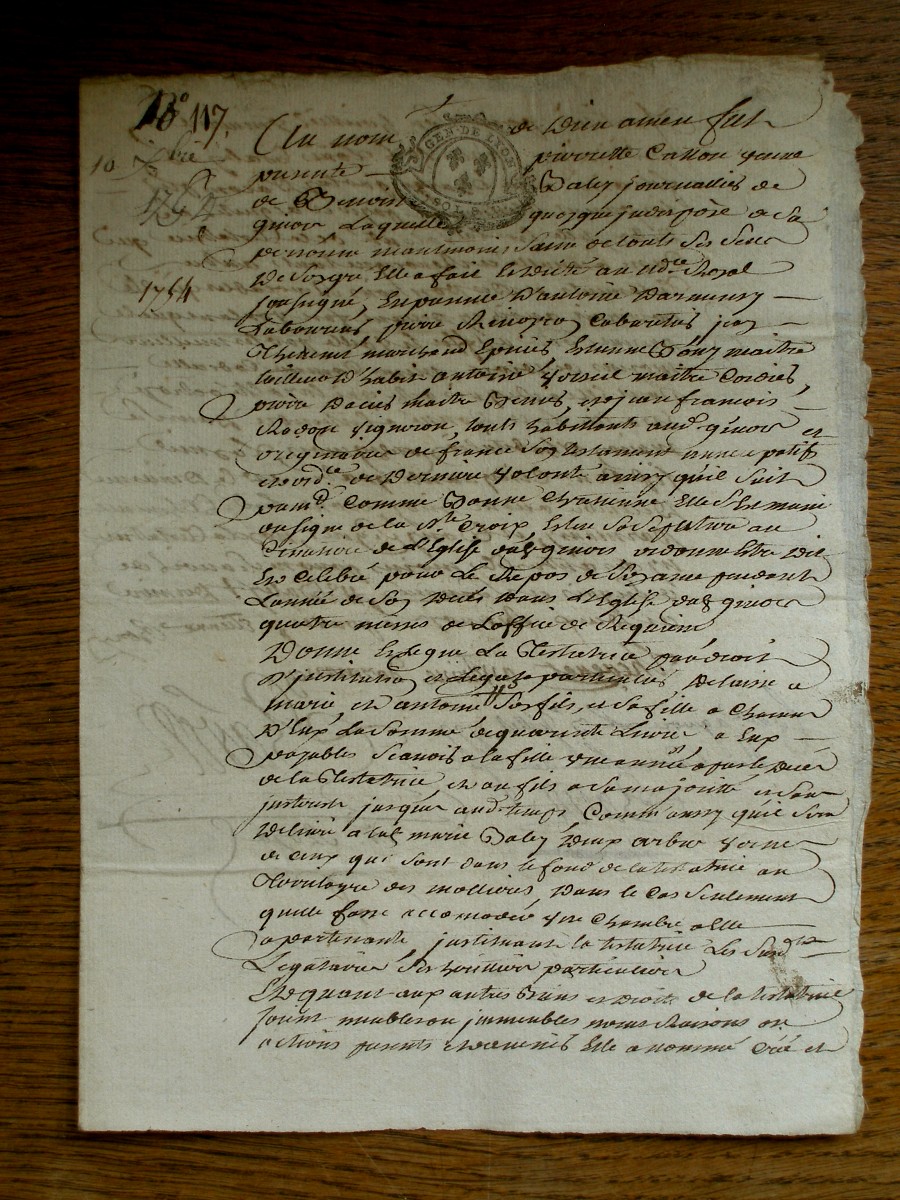 N° 117.
10 xbre
1754
1754
GEN. DE LYON
SOLS
Au nom de Dieu amen fut
presente pierrette Catton veuve
de Benoist Baley journallier de
givors Laquelle quoique indisposée de sa
personne neantmoins saine de touts ses sens
De son gré Elle a fait le dicté au nore Royal
soussigné, En presence D'antoine
Laboureur, pierre Cabaretier, jean
marchand Epicier, Estienne maitre
tailleur D'habits antoine maitre Cordier,
pierre maitre et jean francois
vigneron, touts habitants aud. givors et
originaires de france son testament nuncupatif
et ord.ce de Derniere volonté ainsy qu'il suit
Comme Bonne Chretienne Elle s'est munie
du signe de la Ste Croix, Eslu sa sepulture au
Cimetiere de l'Eglise dud. givors, ordonne Etre dit
Et Celebré pour Le Repos de son ame pendant
L'année de son deces dans l'Eglise dud. givors
quatre messes de L'office de Requiem
Donne et legue La Testatrice par droit
D'institution et legats particuliers Delaisse a
marie, et antoine ses fils, et sa fille a Chacun
D'Eux La somme de quarante Livres a Eux
payables scavoir a la fille une année apres le deces
de la Testatrice, et au fils a sa majorité et sans
interest jusques aud. temps Comm'aussy qu'il sera
delivré a lad. marie Baley deux arbres
de ceux qui sont dans le fond de la testatrice au
Territoire des mollieres, Dans le Cas seulement
qu'elle fasse accomoder une Chambre a Elle
apartenante, instituant la testatrice Les susd.
Legataires ses heritiers particuliers
Et quant aux autres Biens et Droits de la testatrice
soient meubles ou immeubles noms Raisons ou
actions presents et advenirs Elle a nommé Créé et